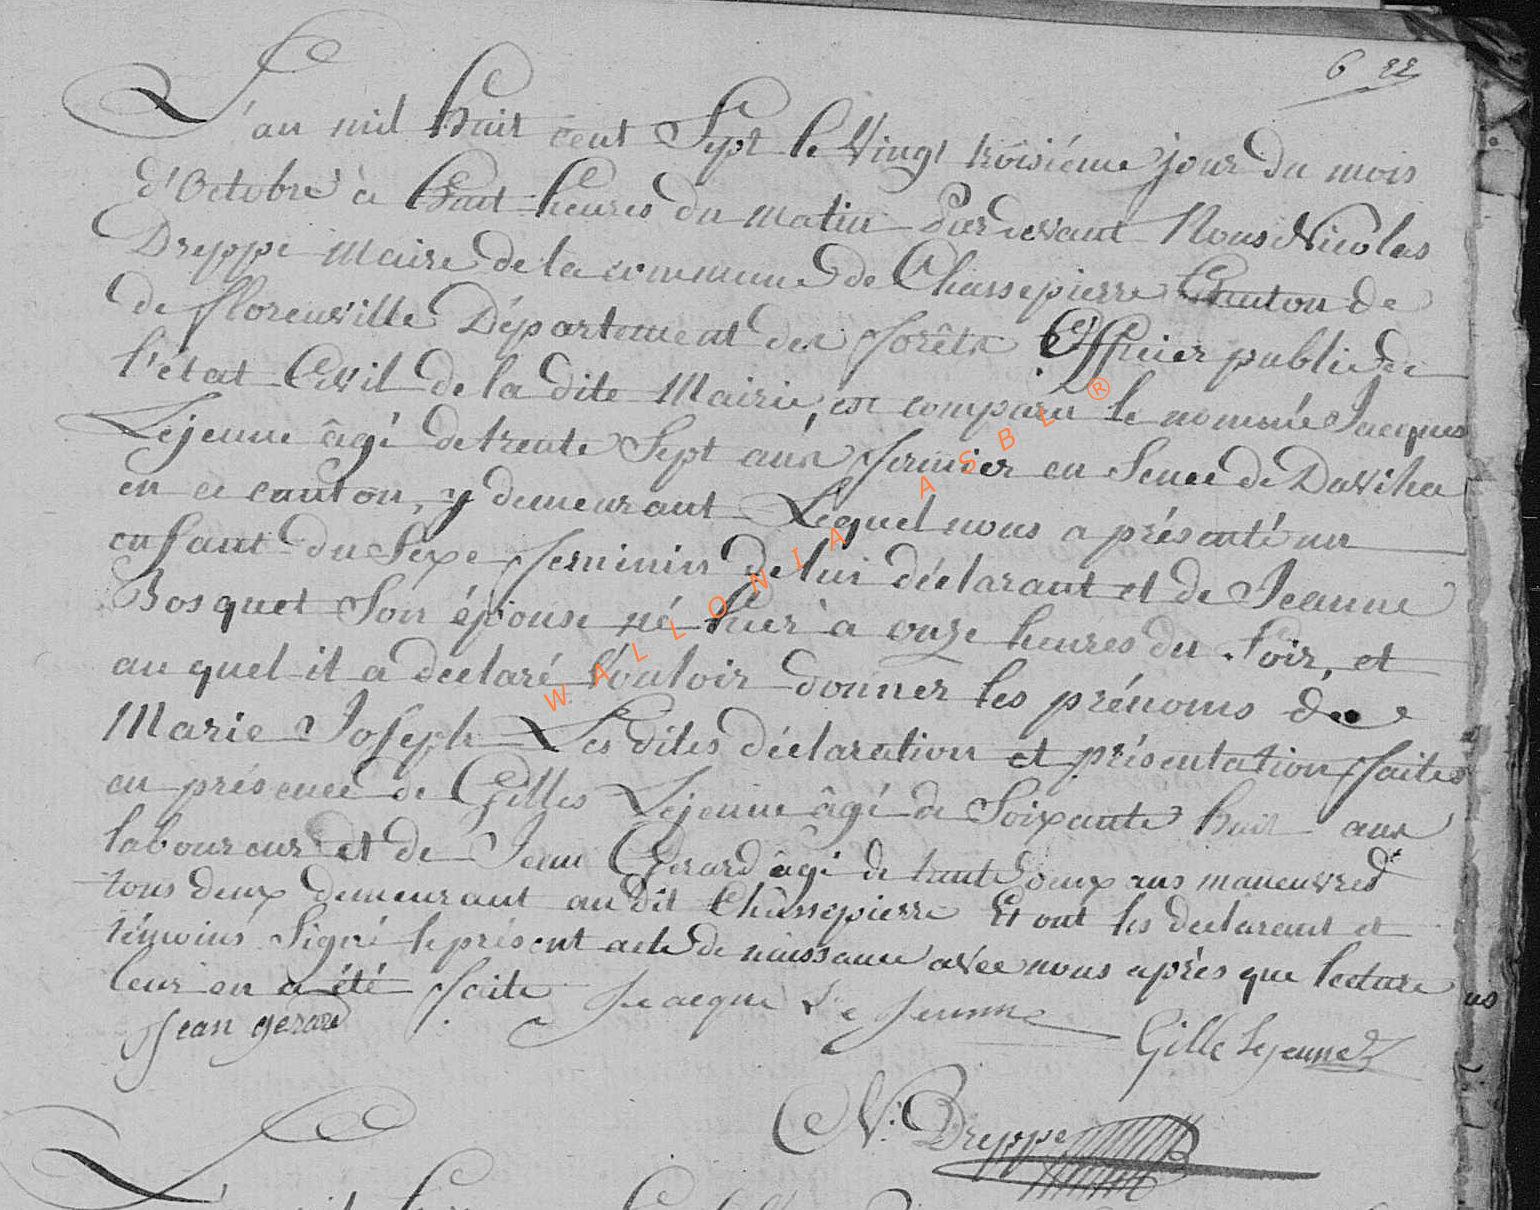 6 22
L'an mil huit cent Sept le Vingt troisiéme jour du mois
d'Octobre à huit heures du matin Pardevant Nous Nicolas
Dreppe Maire de la commune de Chassepierre Canton de
de florenville Département des forêts Officier public de
l'état Civil de la dite Mairie, est comparu le nommé Jacques
Lejeune âgé de trente Sept ans fermier en Cense de
en ce canton, y demeurant Lequel nous a présenté un
enfant du Sexe feminin de lui déclarant et de Jeanne
Bosquet Son épouse né hier à onze heures du Soir, et
au quel il a declaré Vouloir donner les prénoms de
Marie Joseph Les dites déclaration et présentation faites
en présence de Gilles Lejeune âgé de Soixante huit ans
laboureur et de Jean Gerard âgé de trente deux ans maneuvre
tous deux demeurant au dit Chassepierre Et ont les declarant et
témoins Signé le présent acte de naissance avec nous après que lecture
leur en a été faite Jeacque Le Jeunne
Jean gerard
Gille Lejeune
N. Dreppe
WALLONIA ASBL ®
L'